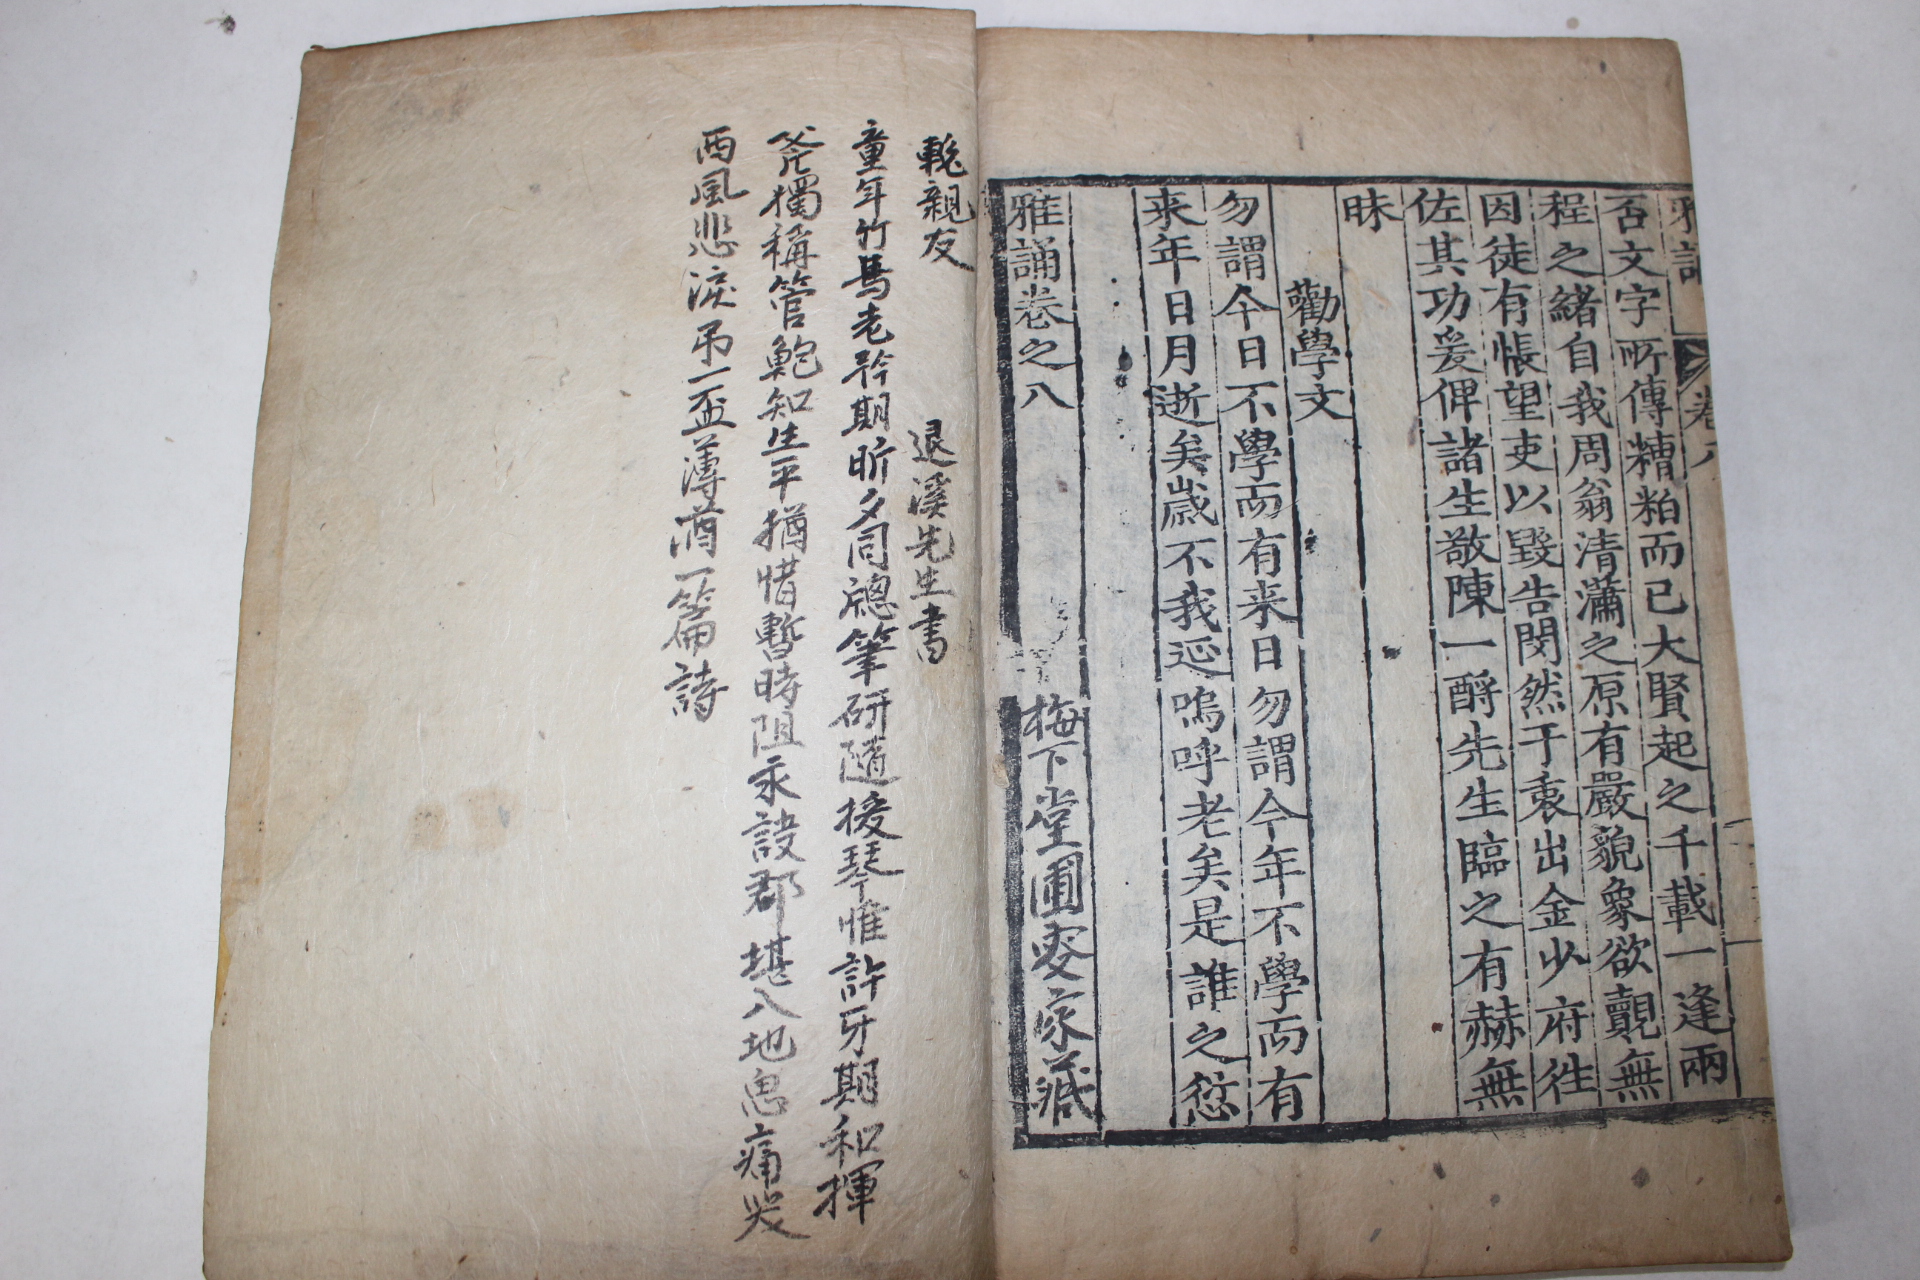 雅誦 卷八
否文字所傳糟粕而已大賢起之千載一逢兩
程之緒自我周翁清瀟之原有嚴貌象欲覿無
因徒有悵望吏以毀告閔然于衷出金少府往
佐其功爰俾諸生敬陳一酹先生臨之有赫無
昧
勸學文
勿謂今日不學而有来日勿謂今年不學而有
来年日月逝矣歲不我延嗚呼老矣是誰之愆
雅誦卷之八
梅下堂圃窓家藏
輓親友 退溪先生書
童年竹馬老矜期昕夕同牕筆硏隨援琴惟許牙期和揮
斧獨稱管鮑知生平猶惜暫時阻永訣那堪入地悤痛哭
西風悲淚吊一盃薄酒一篇詩